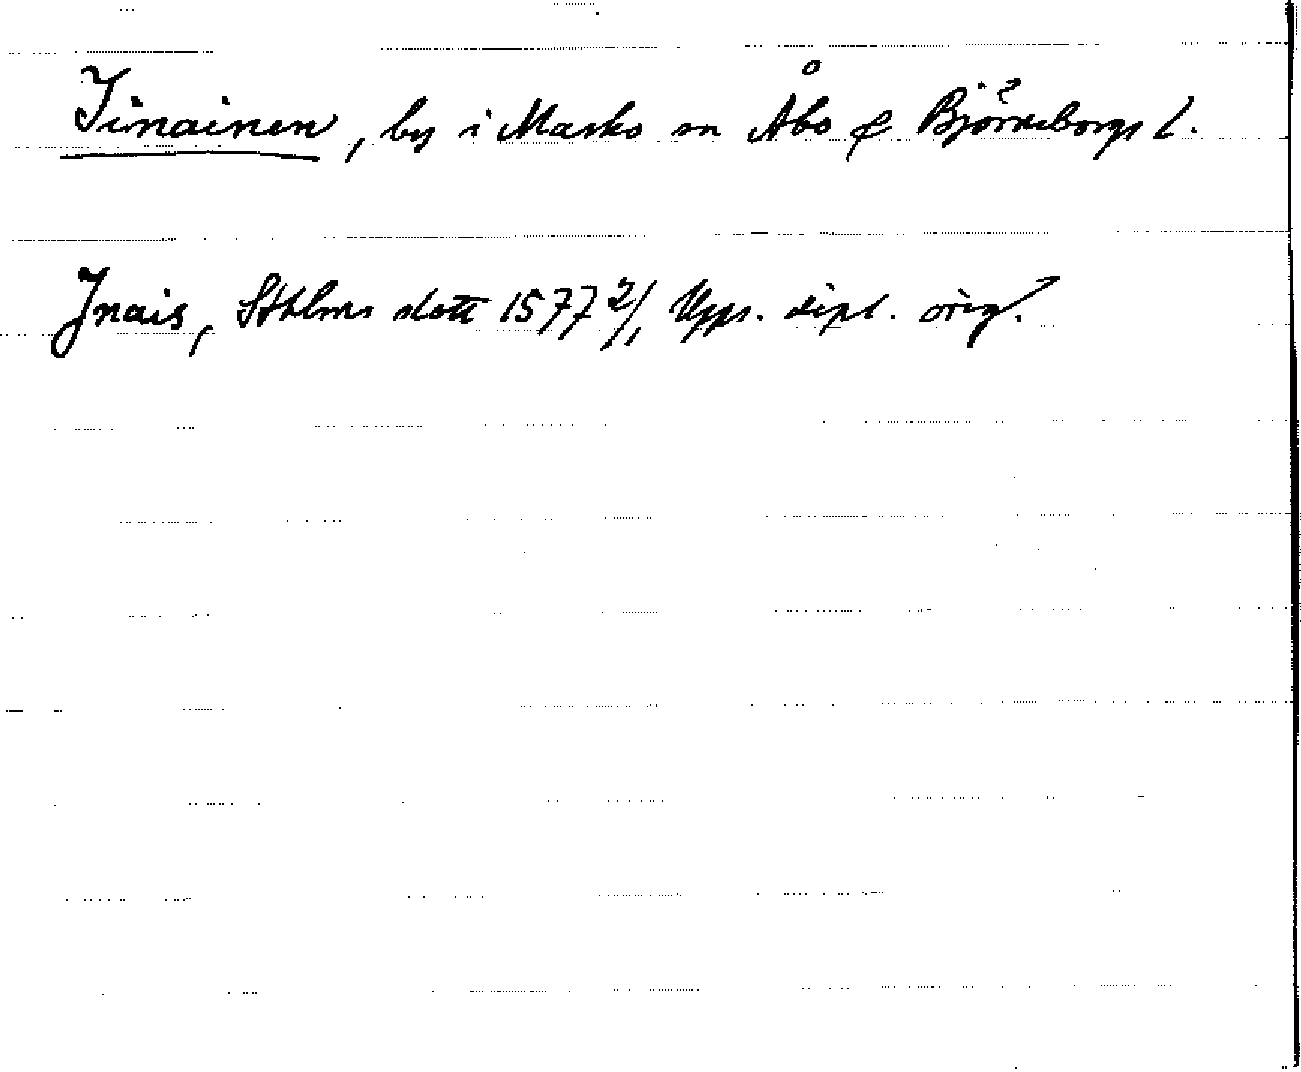 Iinainen, by i Masko sn Åbo & Björneborgs l.
Jnais, Sthlms slott 1577 2/1, Upps. dipl. orig.